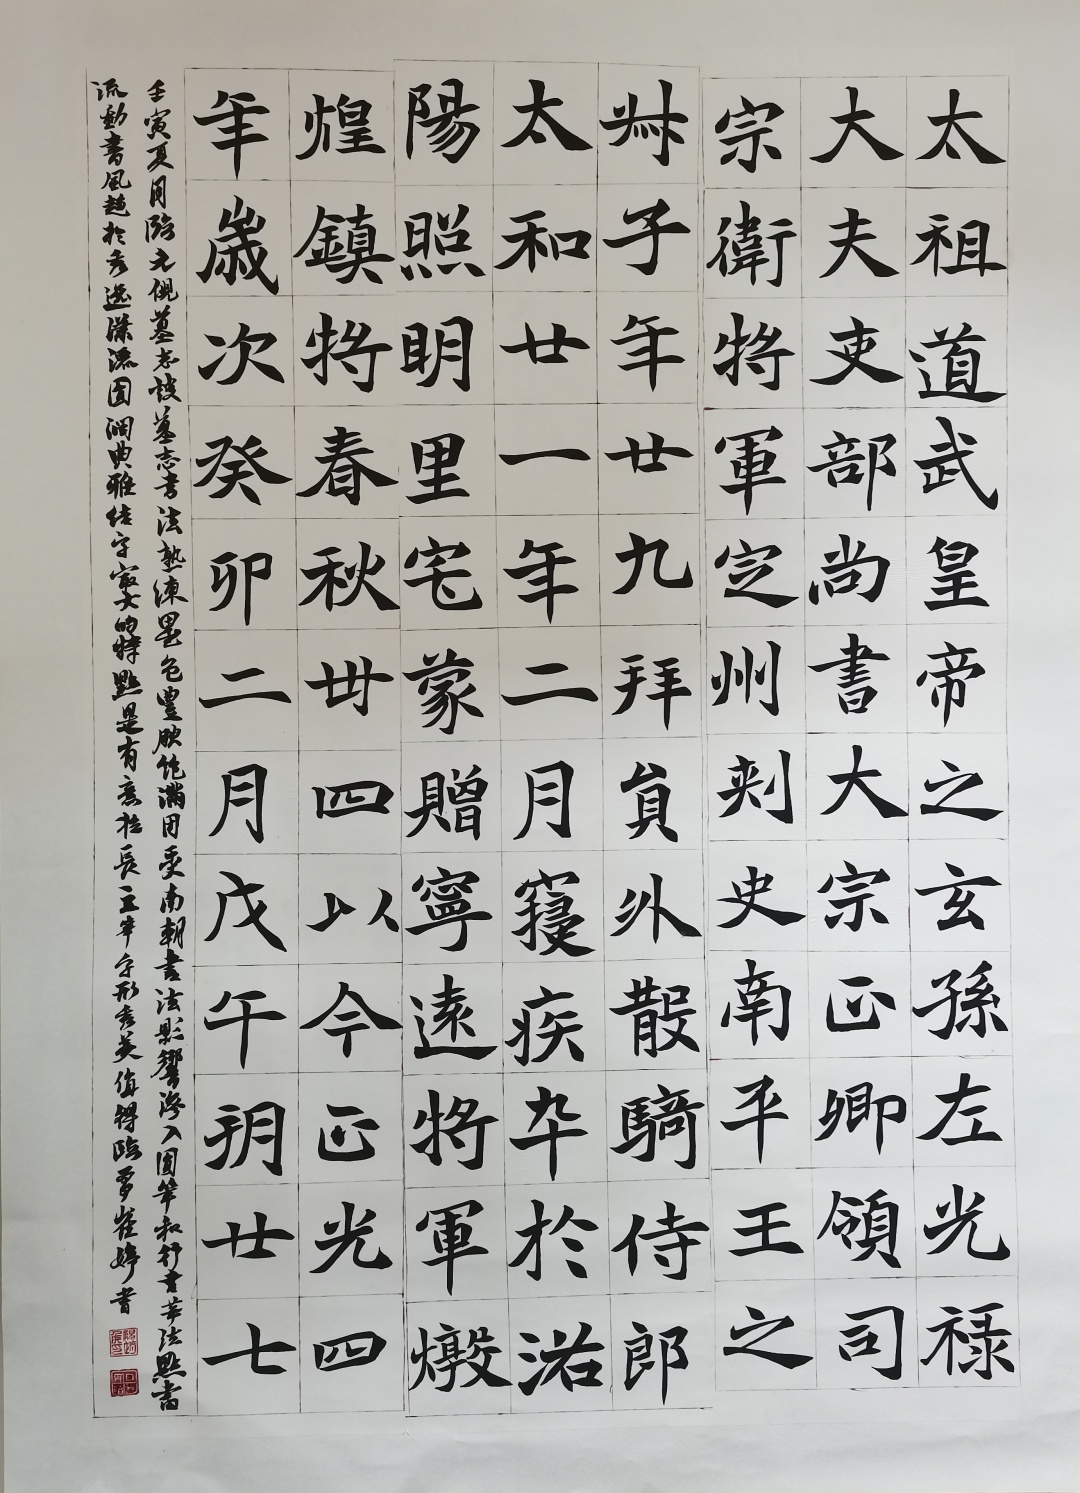 太祖道武皇帝之玄孫左光禄
大夫吏部尚書大宗正卿領司
宗衛將軍定州刾史南平王之
㐬子年廿九拜員外散騎侍郎
太和廿一年二月寑疾卒於洛
陽照明里宅蒙贈寧遠將軍燉
煌鎮將春秋丗四以今正光四
年歲次癸卯二月戊午朔廿七
壬寅夏月臨元倪墓志該墓志書法熟練墨色豐腴飽滿因受南朝書法影響滲入圓筆和行書筆法點畫
流動書風趋於秀逸潇洒圆润典雅結字宽大的特點是有意拉長豎筆字形秀美值得臨習崔婷書